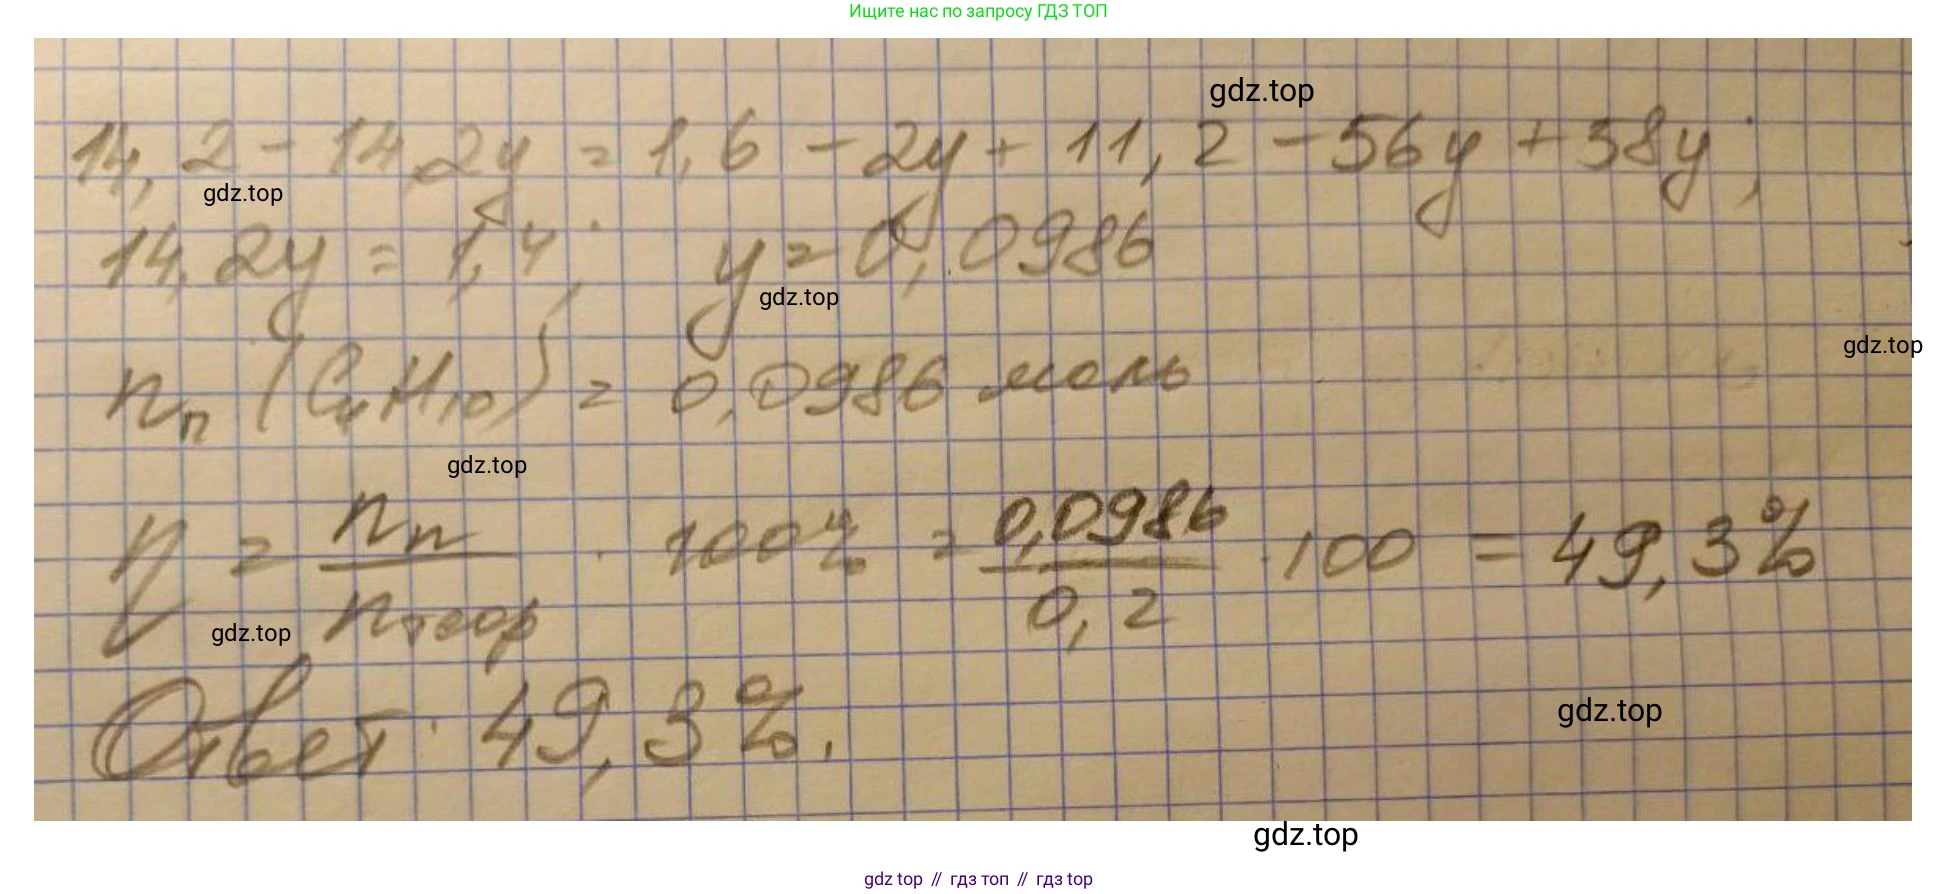 Ищите нас по запросу ГДЗ ТОП
gdz.top
14,2 - 14,2y = 1,6 - 2y + 11,2 - 56y + 58y;
gdz.top
14,2y = 1,4; y = 0,0986
gdz.top
gdz.top
nп (C4H10) = 0,0986 моль
gdz.top
η = nп / nтеор · 100% = 0,0986 / 0,2 · 100 = 49,3%
gdz.top
Ответ: 49,3%.
gdz.top
gdz.top
gdz top // гдз топ // гдз top